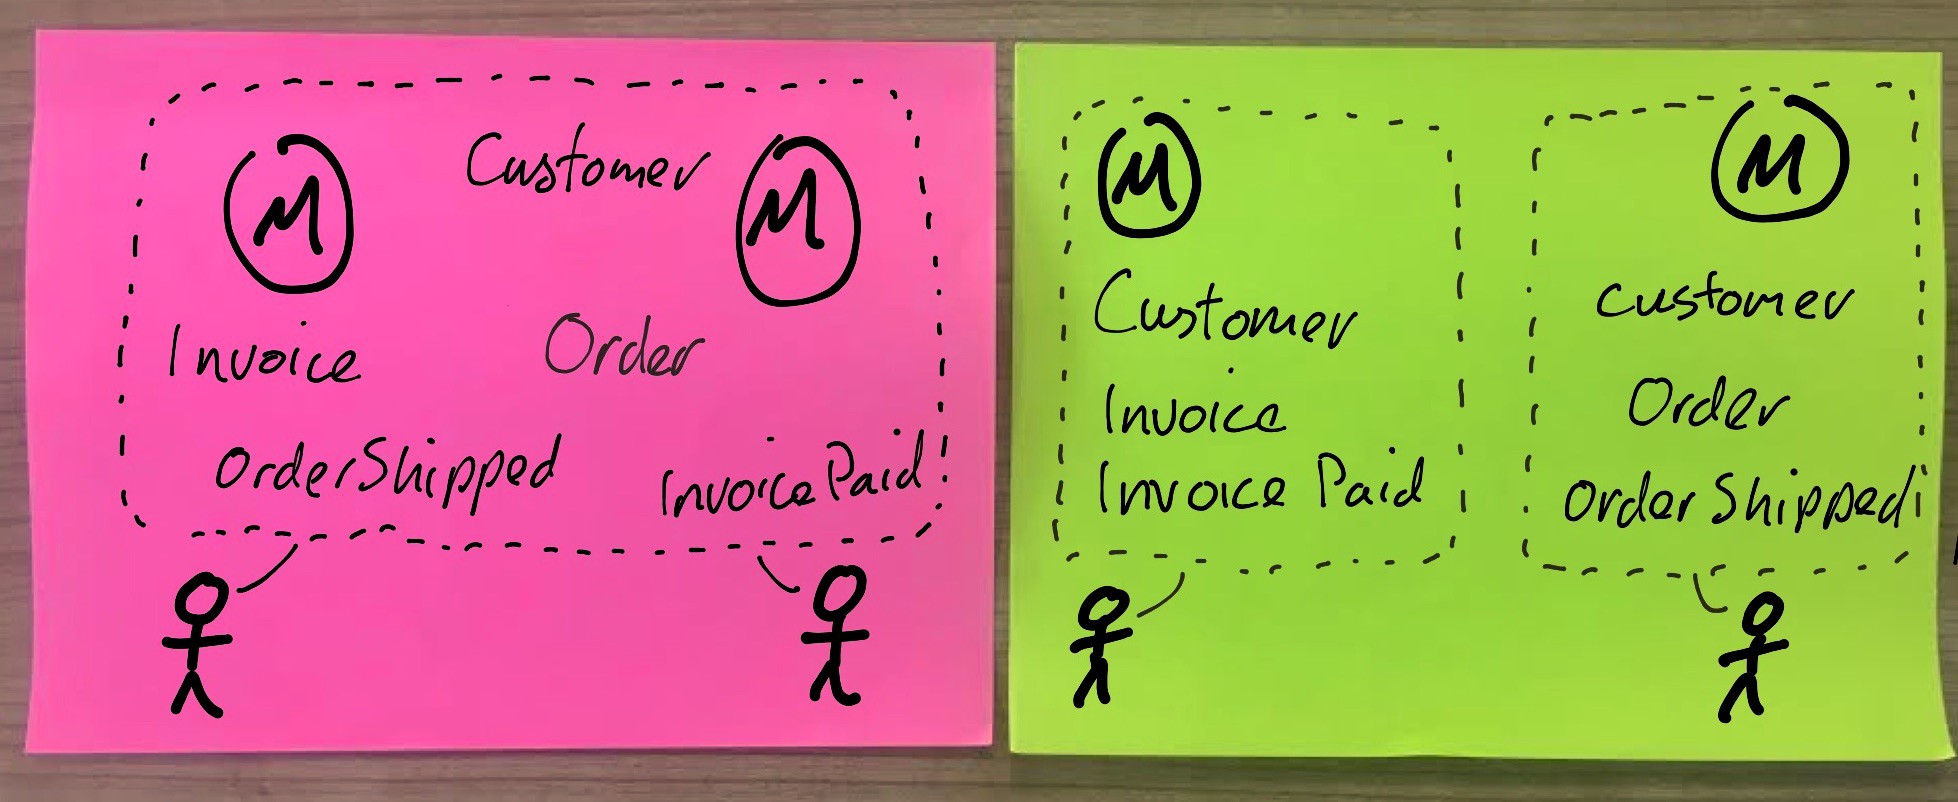 M
Customer
M
Invoice
Order
OrderShipped
InvoicePaid
M
Customer
Invoice
Invoice Paid
M
Customer
Order
Order Shipped